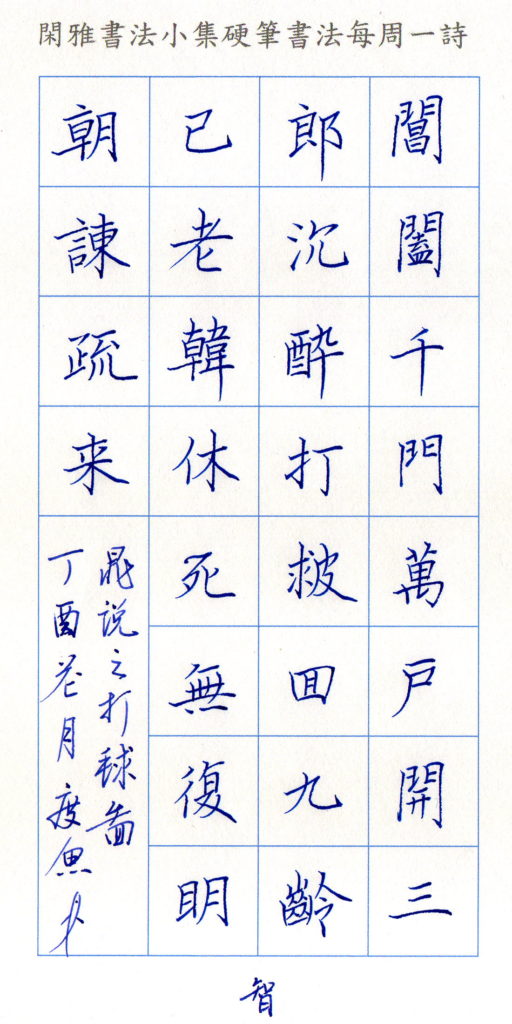 閑雅書法小集硬筆書法每周一詩
閶闔千門萬户開三
郎沉醉打毬囬九齡
已老韓休死無復明
朝諫疏来
晁说之打球圖
丁酉花月度魚
智